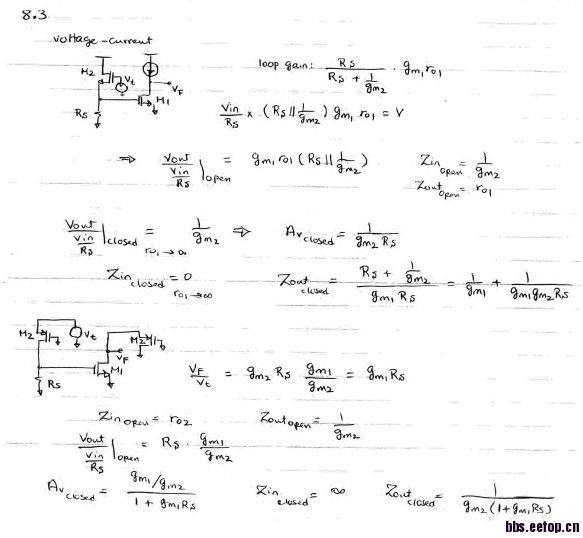 8.3
voltage-current
M2
Vt
VF
M1
Rs
loop gain: Rs / (Rs + 1/gm2) · gm1 ro1
Vin/Rs × (Rs || 1/gm2) gm1 ro1 = V
⇒ Vout / (Vin/Rs) |open = gm1 ro1 (Rs || 1/gm2)
Zin open = 1/gm2
Zout open = ro1
Vout / (Vin/Rs) |closed ro1→∞ = 1/gm2 ⇒ Av closed = 1/(gm2 Rs)
Zin closed = 0 ro1→∞
Zout closed = (Rs + 1/gm2) / (gm1 Rs) = 1/gm1 + 1/(gm1 gm2 Rs)
M2
Vt
M2
VF
M1
Rs
VF/Vt = gm2 Rs gm1/gm2 = gm1 Rs
Zin open = ro2
Zout open = 1/gm2
Vout / (Vin/Rs) |open = Rs · gm1/gm2
Av closed = (gm1/gm2) / (1 + gm1 Rs)
Zin closed = ∞
Zout closed = 1 / (gm2 (1 + gm1 Rs))
bbs.eetop.cn